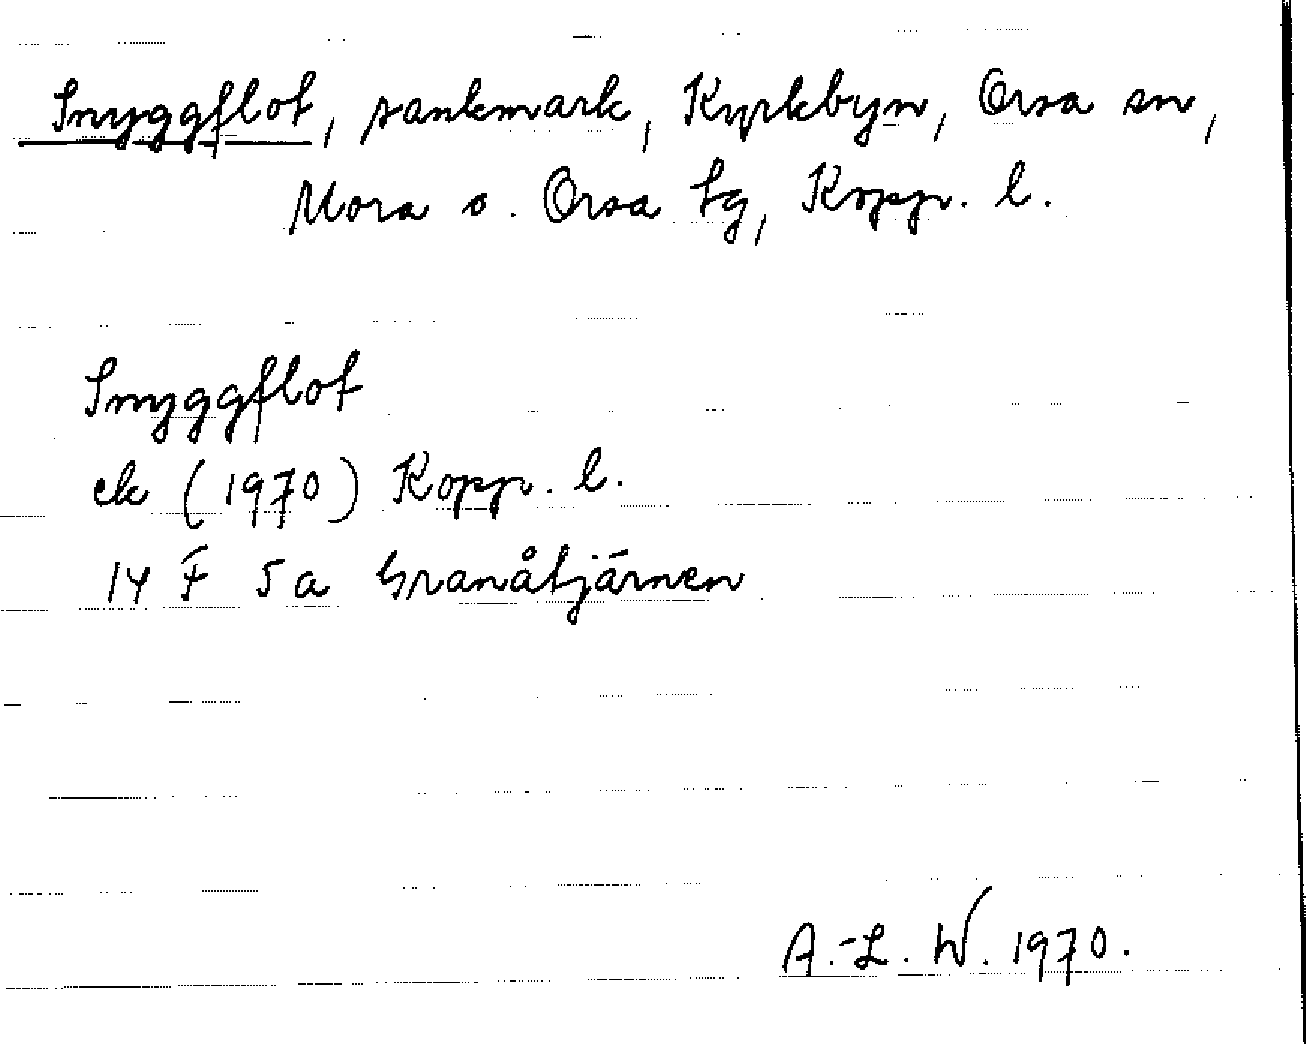 Snyggflot, sankmark, Kyrkbyn, Orsa sn,
Mora o. Orsa tg, Kopp. l.
Snyggflot
ek (1970) Kopp. l.
14 F 5a Granåtjärnen
A.-L. W. 1970.